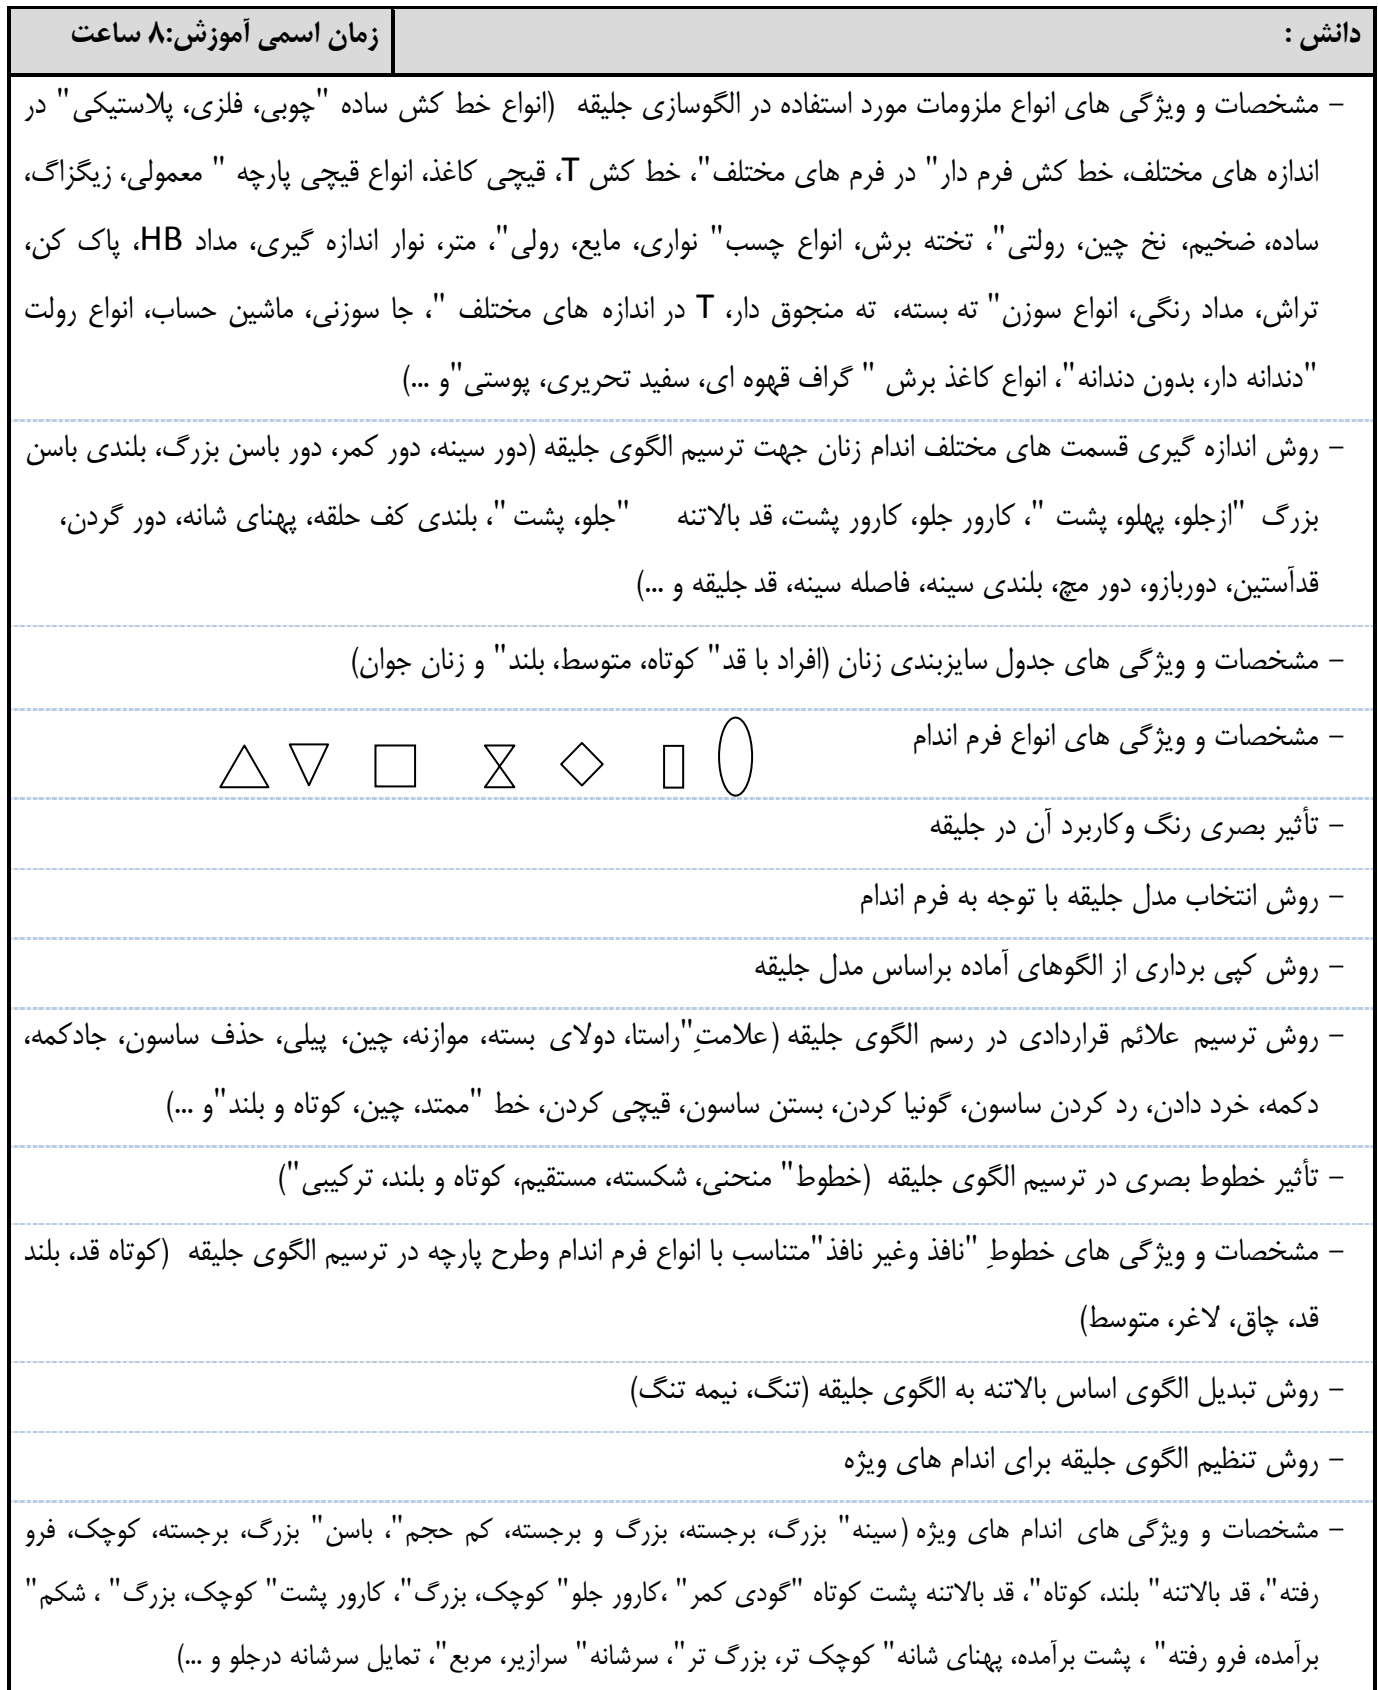 دانش :
زمان اسمی آموزش:۸ ساعت
- مشخصات و ویژگی های انواع ملزومات مورد استفاده در الگوسازی جلیقه (انواع خط کش ساده "چوبی، فلزی، پلاستیکی" در
اندازه های مختلف، خط کش فرم دار" در فرم های مختلف"، خط کش T، قیچی کاغذ، انواع قیچی پارچه " معمولی، زیگزاگ،
ساده، ضخیم، نخ چین، رولتی"، تخته برش، انواع چسب" نواری، مایع، رولی"، متر، نوار اندازه گیری، مداد HB، پاک کن،
تراش، مداد رنگی، انواع سوزن" ته بسته، ته منجوق دار، T در اندازه های مختلف "، جا سوزنی، ماشین حساب، انواع رولت
"دندانه دار، بدون دندانه"، انواع کاغذ برش " گراف قهوه ای، سفید تحریری، پوستی"و ...)
- روش اندازه گیری قسمت های مختلف اندام زنان جهت ترسیم الگوی جلیقه (دور سینه، دور کمر، دور باسن بزرگ، بلندی باسن
بزرگ "ازجلو، پهلو، پشت "، کارور جلو، کارور پشت، قد بالاتنه "جلو، پشت "، بلندی کف حلقه، پهنای شانه، دور گردن،
قدآستین، دوربازو، دور مچ، بلندی سینه، فاصله سینه، قد جلیقه و ...)
- مشخصات و ویژگی های جدول سایزبندی زنان (افراد با قد" کوتاه، متوسط، بلند" و زنان جوان)
- مشخصات و ویژگی های انواع فرم اندام
- تأثیر بصری رنگ وکاربرد آن در جلیقه
- روش انتخاب مدل جلیقه با توجه به فرم اندام
- روش کپی برداری از الگوهای آماده براساس مدل جلیقه
- روش ترسیم علائم قراردادی در رسم الگوی جلیقه (علامتِ"راستا، دولای بسته، موازنه، چین، پیلی، حذف ساسون، جادکمه،
دکمه، خرد دادن، رد کردن ساسون، گونیا کردن، بستن ساسون، قیچی کردن، خط "ممتد، چین، کوتاه و بلند"و ...)
- تأثیر خطوط بصری در ترسیم الگوی جلیقه (خطوط" منحنی، شکسته، مستقیم، کوتاه و بلند، ترکیبی")
- مشخصات و ویژگی های خطوطِ "نافذ وغیر نافذ"متناسب با انواع فرم اندام وطرح پارچه در ترسیم الگوی جلیقه (کوتاه قد، بلند
قد، چاق، لاغر، متوسط)
- روش تبدیل الگوی اساس بالاتنه به الگوی جلیقه (تنگ، نیمه تنگ)
- روش تنظیم الگوی جلیقه برای اندام های ویژه
- مشخصات و ویژگی های اندام های ویژه (سینه" بزرگ، برجسته، بزرگ و برجسته، کم حجم"، باسن" بزرگ، برجسته، کوچک، فرو
رفته"، قد بالاتنه" بلند، کوتاه"، قد بالاتنه پشت کوتاه "گودی کمر" ،کارور جلو" کوچک، بزرگ"، کارور پشت" کوچک، بزرگ" ، شکم"
برآمده، فرو رفته" ، پشت برآمده، پهنای شانه" کوچک تر، بزرگ تر"، سرشانه" سرازیر، مربع"، تمایل سرشانه درجلو و ...)